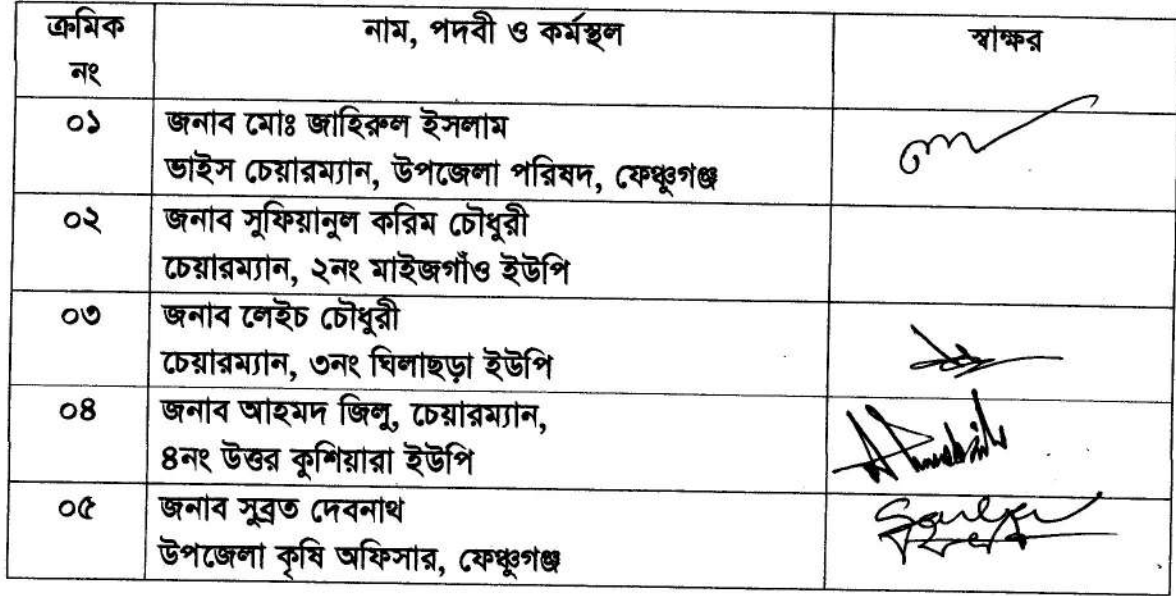 ক্রমিক নাম, পদবী ও কর্মস্থল স্বাক্ষর
নং
০১ জনাব মোঃ জাহিরুল ইসলাম
ভাইস চেয়ারম্যান, উপজেলা পরিষদ, ফেঞ্চুগঞ্জ
০২ জনাব সুফিয়ানুল করিম চৌধুরী
চেয়ারম্যান, ২নং মাইজগাঁও ইউপি
০৩ জনাব লেইচ চৌধুরী
চেয়ারম্যান, ৩নং ঘিলাছড়া ইউপি
০৪ জনাব আহমদ জিলু, চেয়ারম্যান,
৪নং উত্তর কুশিয়ারা ইউপি
০৫ জনাব সুব্রত দেবনাথ
উপজেলা কৃষি অফিসার, ফেঞ্চুগঞ্জ